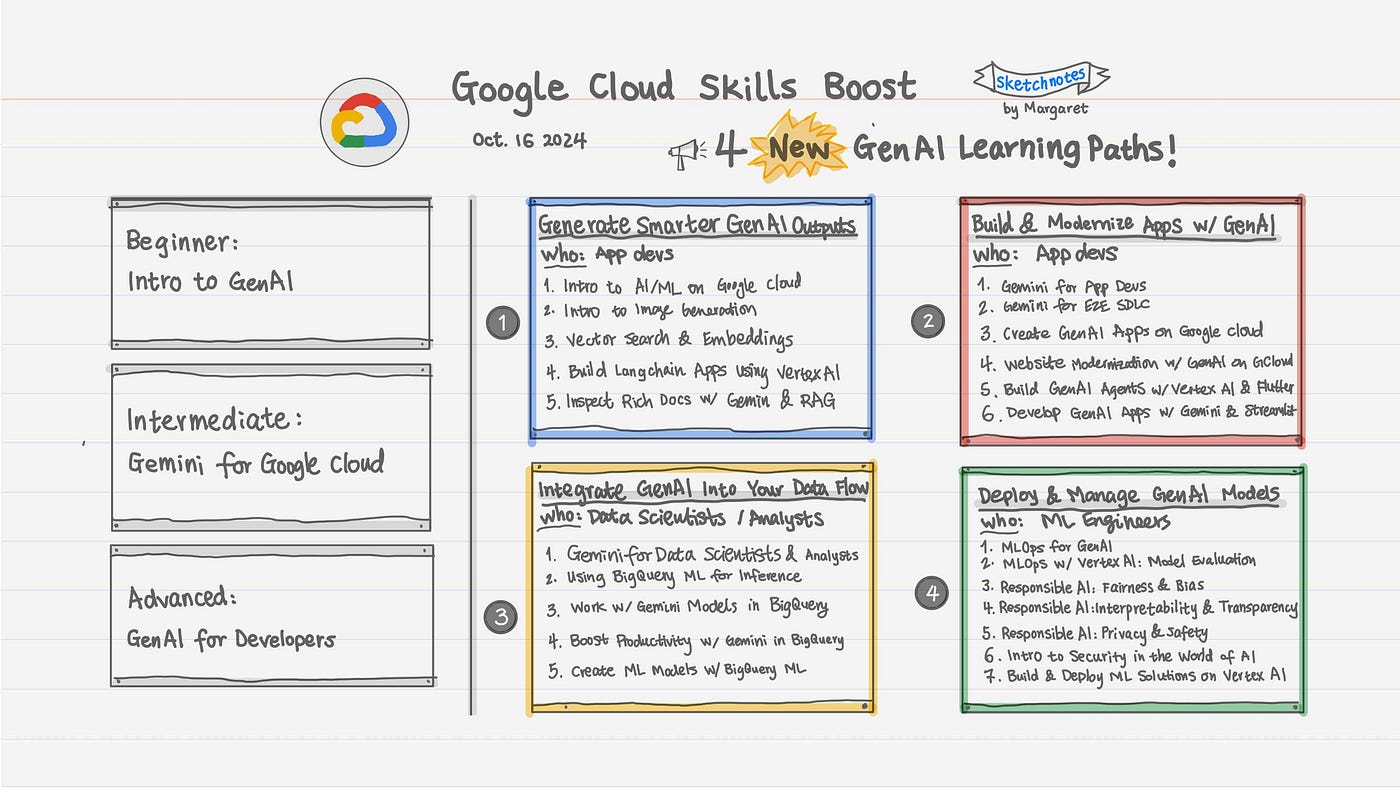 Google Cloud Skills Boost
Sketchnotes
by Margaret
Oct. 16 2024
4 New GenAI Learning Paths!
Beginner:
Intro to GenAI
Intermediate:
Gemini for Google Cloud
Advanced:
GenAI for Developers
1
Generate Smarter GenAI Outputs
Who: App devs
1. Intro to AI/ML on Google Cloud
2. Intro to Image Generation
3. Vector Search & Embeddings
4. Build Langchain Apps using Vertex AI
5. Inspect Rich Docs w/ Gemin & RAG
2
Build & Modernize Apps w/ GenAI
Who: App devs
1. Gemini for App Devs
2. Gemini for E2E SDLC
3. Create GenAI Apps on Google Cloud
4. Website Modernization w/ GenAI on GCloud
5. Build GenAI Agents w/ Vertex AI & Flutter
6. Develop GenAI Apps w/ Gemini & Streamlit
3
Integrate GenAI Into Your Data Flow
Who: Data Scientists / Analysts
1. Gemini for Data Scientists & Analysts
2. Using BigQuery ML for Inference
3. Work w/ Gemini Models in BigQuery
4. Boost Productivity w/ Gemini in BigQuery
5. Create ML Models w/ BigQuery ML
4
Deploy & Manage GenAI Models
Who: ML Engineers
1. MLOps for GenAI
2. MLOps w/ Vertex AI: Model Evaluation
3. Responsible AI: Fairness & Bias
4. Responsible AI: Interpretability & Transparency
5. Responsible AI: Privacy & Safety
6. Intro to Security in the World of AI
7. Build & Deploy ML Solutions on Vertex AI